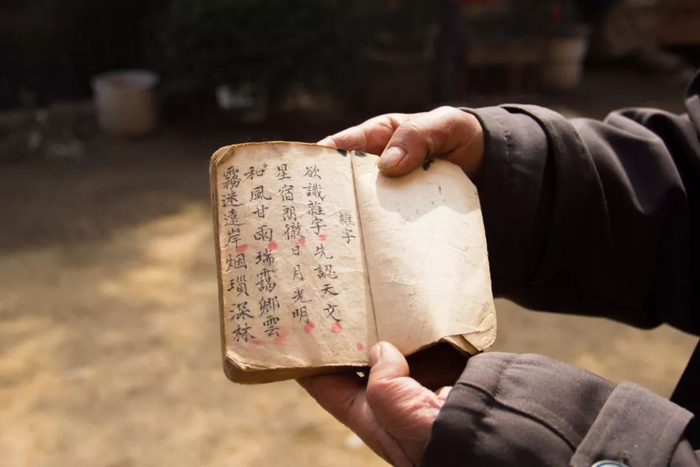 雜字
欲識雜字先認天文
星宿朗徹日月光明
和風甘雨瑞靄鄉雲
霧迷遠岸烟瑣深林